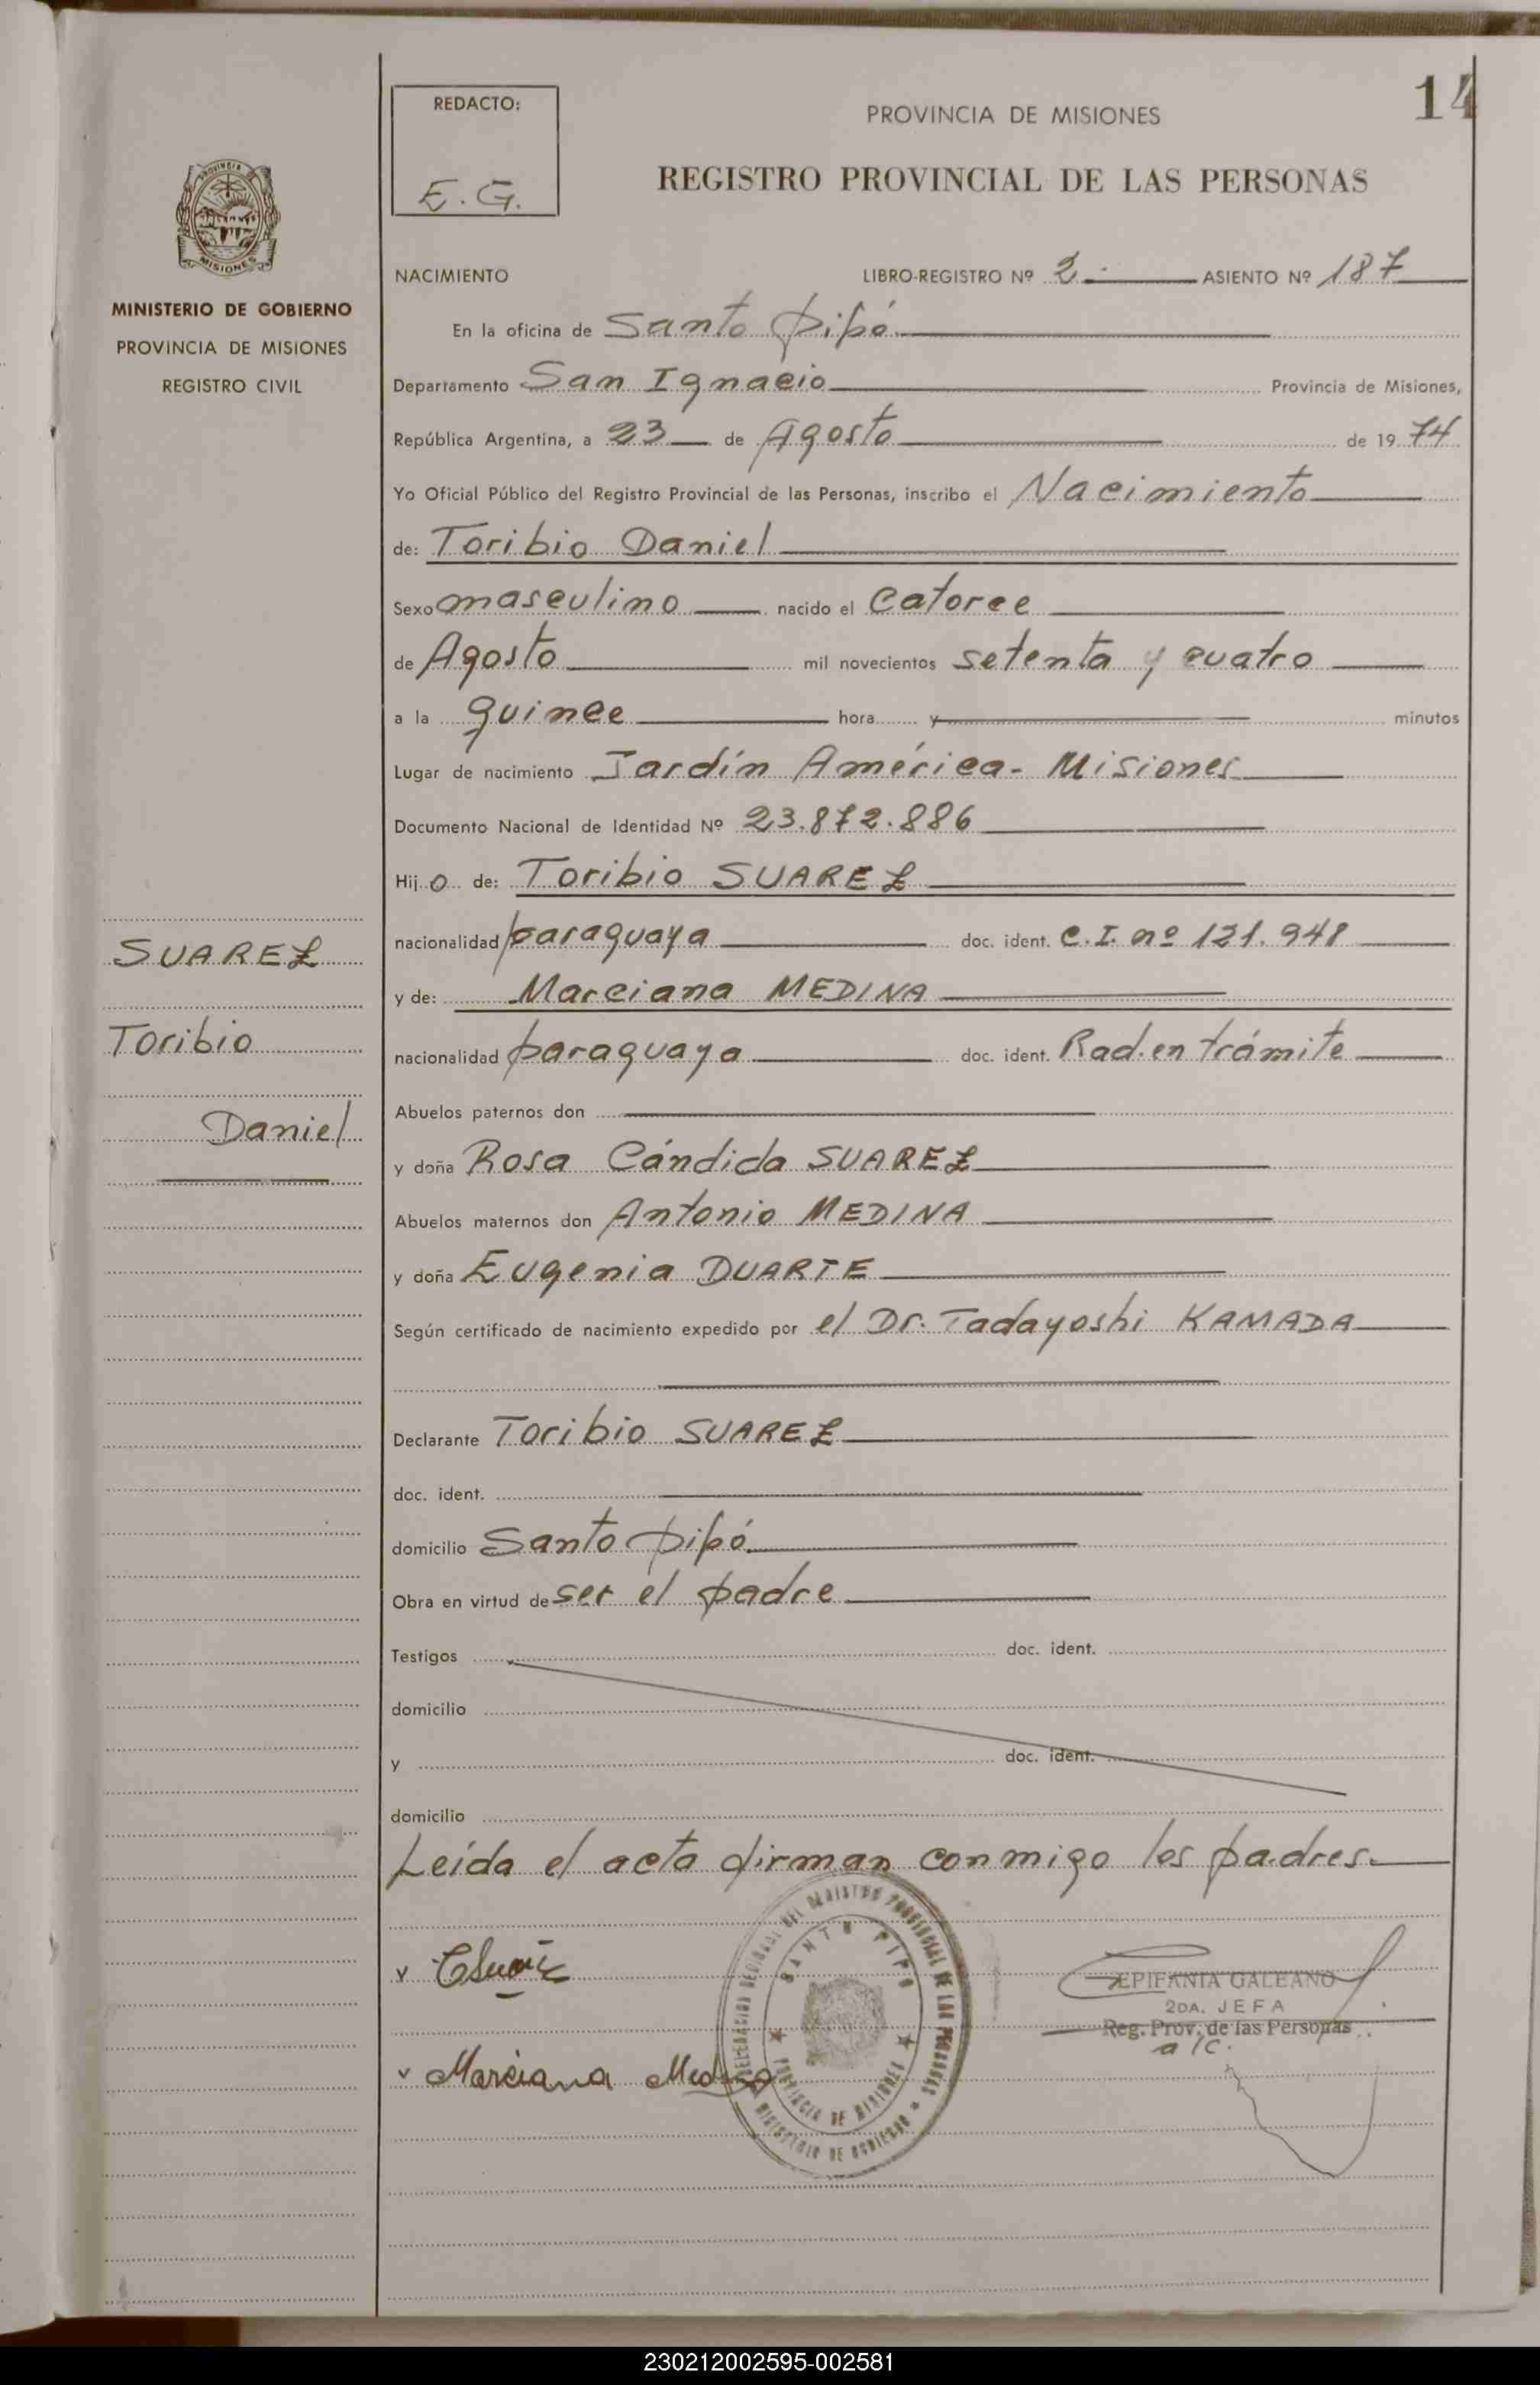 14
REDACTO:
E. G.
PROVINCIA DE MISIONES
REGISTRO PROVINCIAL DE LAS PERSONAS
PROVINCIA DE
MISIONES
MINISTERIO DE GOBIERNO
PROVINCIA DE MISIONES
REGISTRO CIVIL
NACIMIENTO LIBRO-REGISTRO Nº 2.- ASIENTO Nº 187
En la oficina de Santo Pipó
Departamento San Ignacio Provincia de Misiones,
República Argentina, a 23 de Agosto de 1974
Yo Oficial Público del Registro Provincial de las Personas, inscribo el Nacimiento
de: Toribio Daniel
Sexo masculino nacido el catorce
de Agosto mil novecientos setenta y cuatro
a la quince hora y minutos
Lugar de nacimiento Jardín América- Misiones
Documento Nacional de Identidad Nº 23.872.886
Hijo de: Toribio SUAREZ
nacionalidad paraguaya doc. ident. C.I. nº 121.948
y de: Marciana MEDINA
nacionalidad paraguaya doc. ident. Rad. en trámite
Abuelos paternos don
y doña Rosa Cándida SUAREZ
Abuelos maternos don Antonio MEDINA
y doña Eugenia DUARTE
Según certificado de nacimiento expedido por el Dr. Tadayoshi KAMADA
Declarante Toribio SUAREZ
doc. ident.
domicilio Santo Pipó
Obra en virtud de ser el padre
Testigos doc. ident.
domicilio
y doc. ident.
domicilio
Leída el acta firman conmigo los padres.
SUAREZ
Toribio
Daniel
DELEGACION REGIONAL DEL REGISTRO PROVINCIAL DE LAS PERSONAS
SANTO PIPO
PROVINCIA DE MISIONES
MINISTERIO DE GOBIERNO
EPIFANIA GALEANO
2DA. JEFA
Reg. Prov. de las Personas
a/c.
Marciana Medina
230212002595-002581